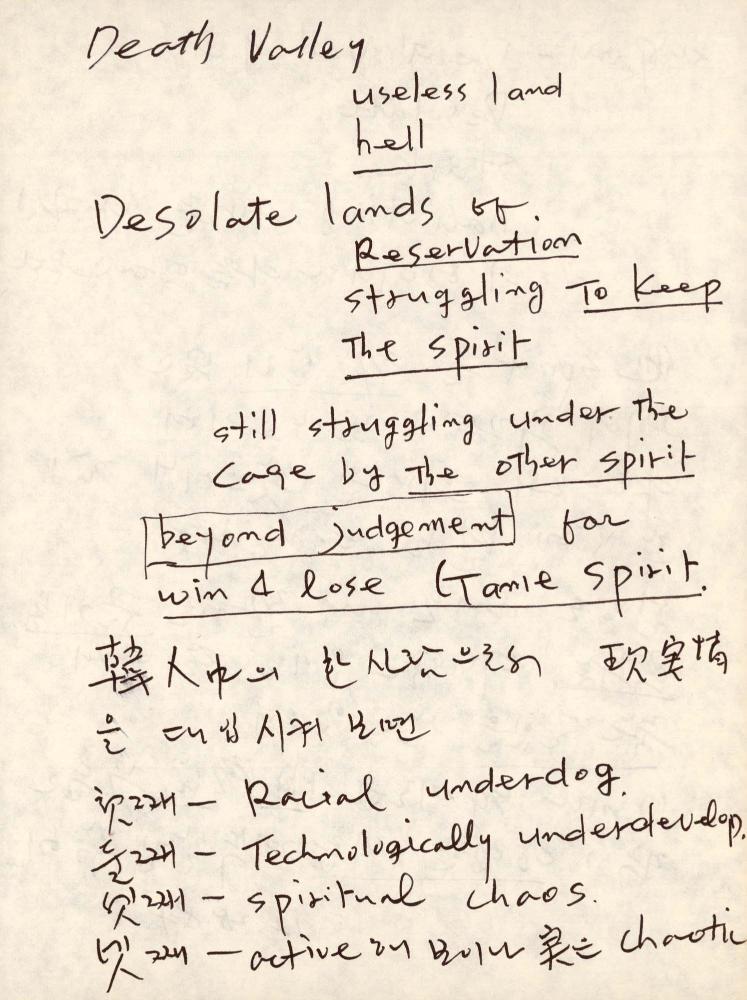 Death Valley
useless land
hell
Desolate lands of.
Reservation
struggling To Keep
The spirit
still struggling under The
Cage by The other spirit
beyond judgement for
win & lose (Tame spirit.
韓人中의 한 사람으로서 現実情
을 대입시켜 보면
첫째 - Racial underdog.
둘째 - Technologically underdevelop.
셋째 - spiritual chaos.
넷째 - active 해 보이나 実은 chaotic